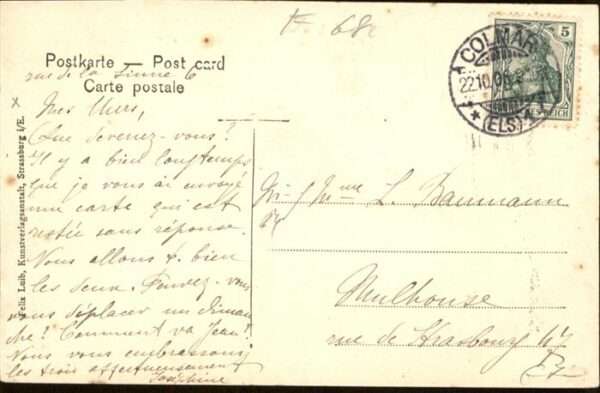 68
Postkarte — Post card
Carte postale
rue de la Sinne 6
Mes chers,
Que devenez-vous?
Il y a bien longtemps
que je vous ai envoyé
une carte qui est
restée sans réponse.
Nous allons bien
les deux. Pouvez-vous
vous déplacer un diman
che? Comment va Jean?
Nous vous embrassons
les trois affectueusement
Joséphine
Felix Luib, Kunstverlagsanstalt, Strassburg i/E.
COLMAR
22.10.06
(ELS)
5
REICH
Mr & Mme L. Baumann
Mulhouse
rue de Strasbourg 47